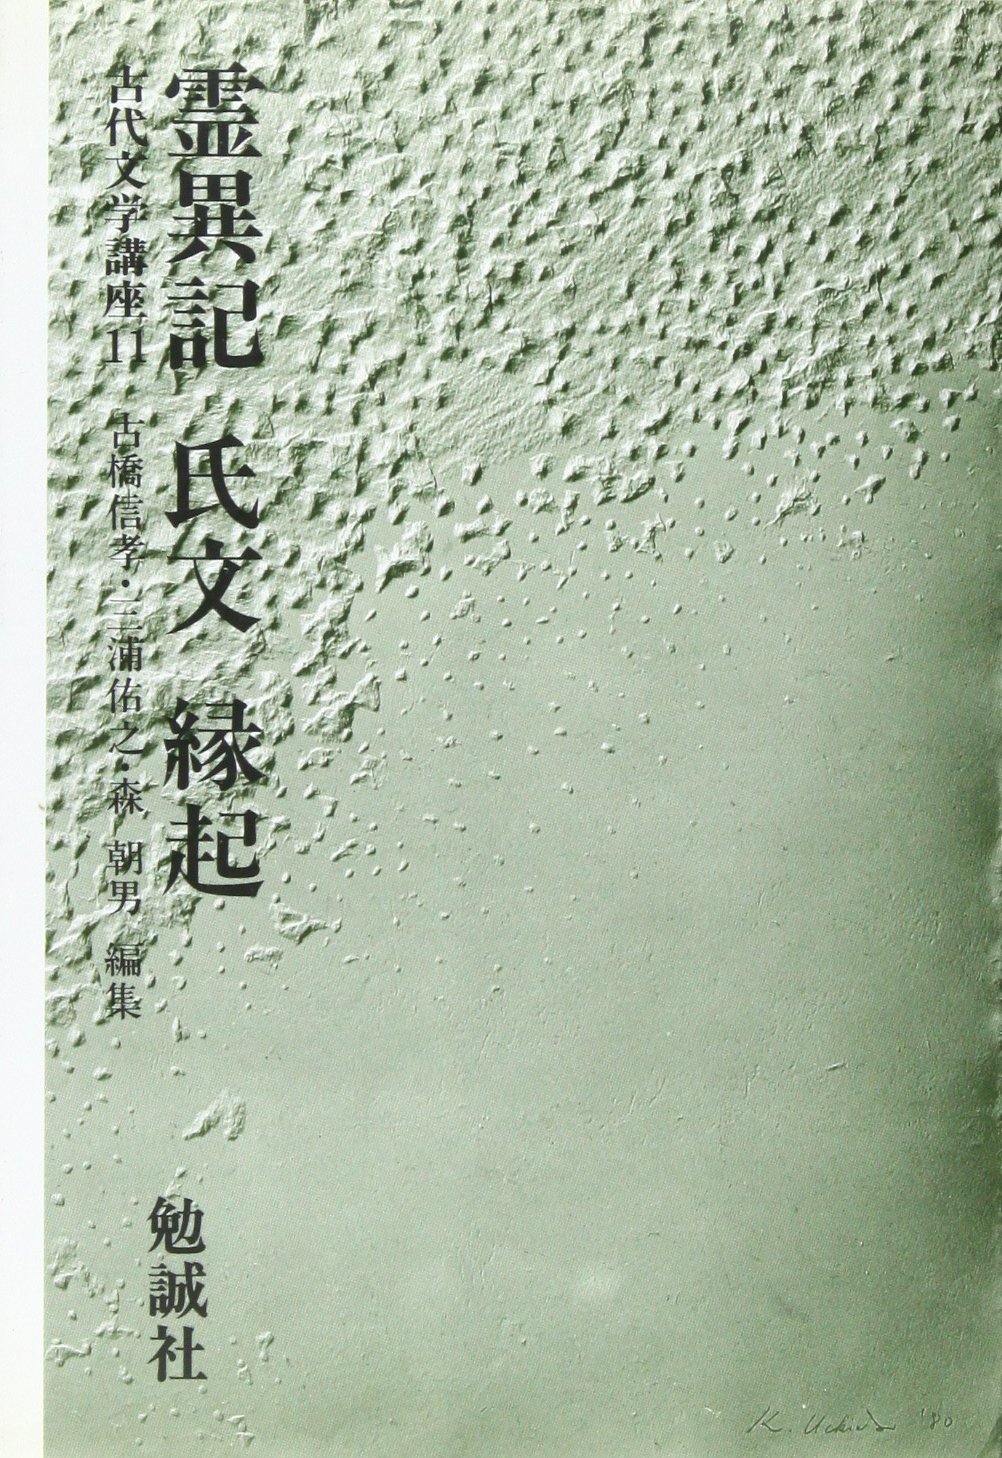 霊異記 氏文 縁起
古代文学講座11 古橋信孝・三浦佑之・森 朝男 編集
勉誠社
K. Uchida '80